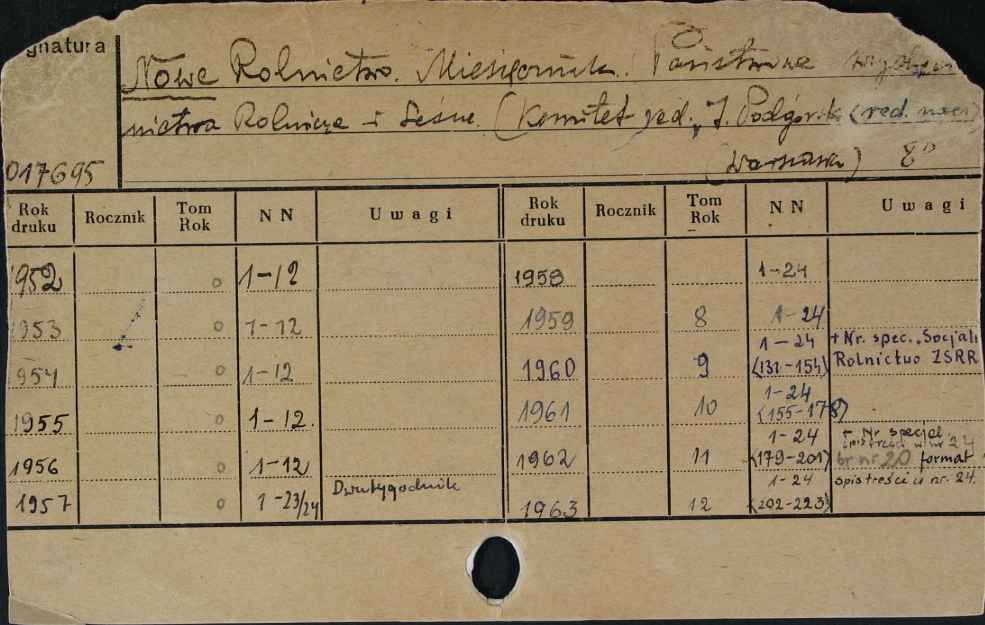 gnatura
Nowe Rolnictwo. Miesięcznik. Państwowe
nictwa Rolnicze i Leśne. (Komitet red. J. Podgórsk (red. nacz)
017695 (Warszawa) 8°
Rok druku Rocznik Tom Rok NN Uwagi Rok druku Rocznik Tom Rok NN Uwagi
1952 o 1-12 1958 1-24
1953 o 1-12 1959 8 1-24
1954 o 1-12 1960 9 1-24 (131-154) + Nr. spec. "Socjali Rolnictwo ZSRR
1955 o 1-12. 1961 10 1-24 (155-178)
1956 o 1-12 1962 11 1-24 (179-201) + Nr specjal. br nr 20 format
1957 o 1-23/24 Dwutygodnik 1963 12 1-24 (202-223) spis treści w nr. 24.